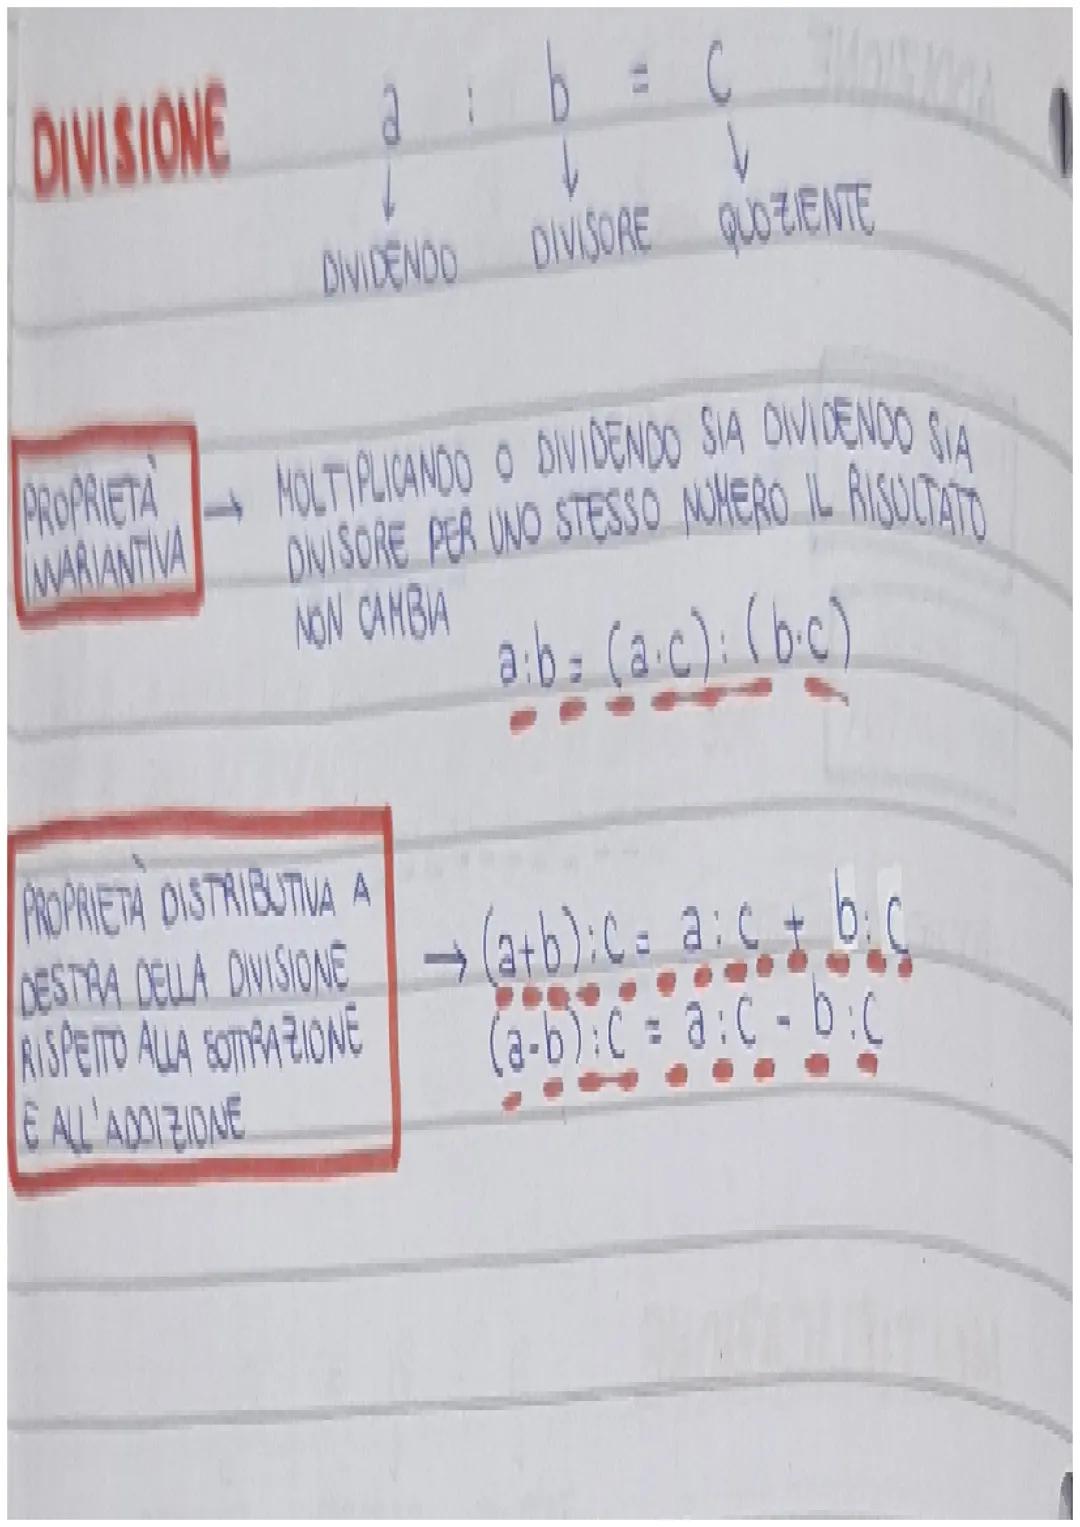 DIVISIONE
a : b = c
↓ ↓ ↓
DIVIDENDO DIVISORE QUOZIENTE
PROPRIETÀ
INVARIANTIVA
→ MOLTIPLICANDO O DIVIDENDO SIA DIVIDENDO SIA
DIVISORE PER UNO STESSO NUMERO IL RISULTATO
NON CAMBIA
a:b = (a·c):(b·c)
PROPRIETÀ DISTRIBUTIVA A
DESTRA DELLA DIVISIONE
RISPETTO ALLA SOTTRAZIONE
E ALL'ADDIZIONE
→ (a+b):c = a:c + b:c
(a-b):c = a:c - b:c